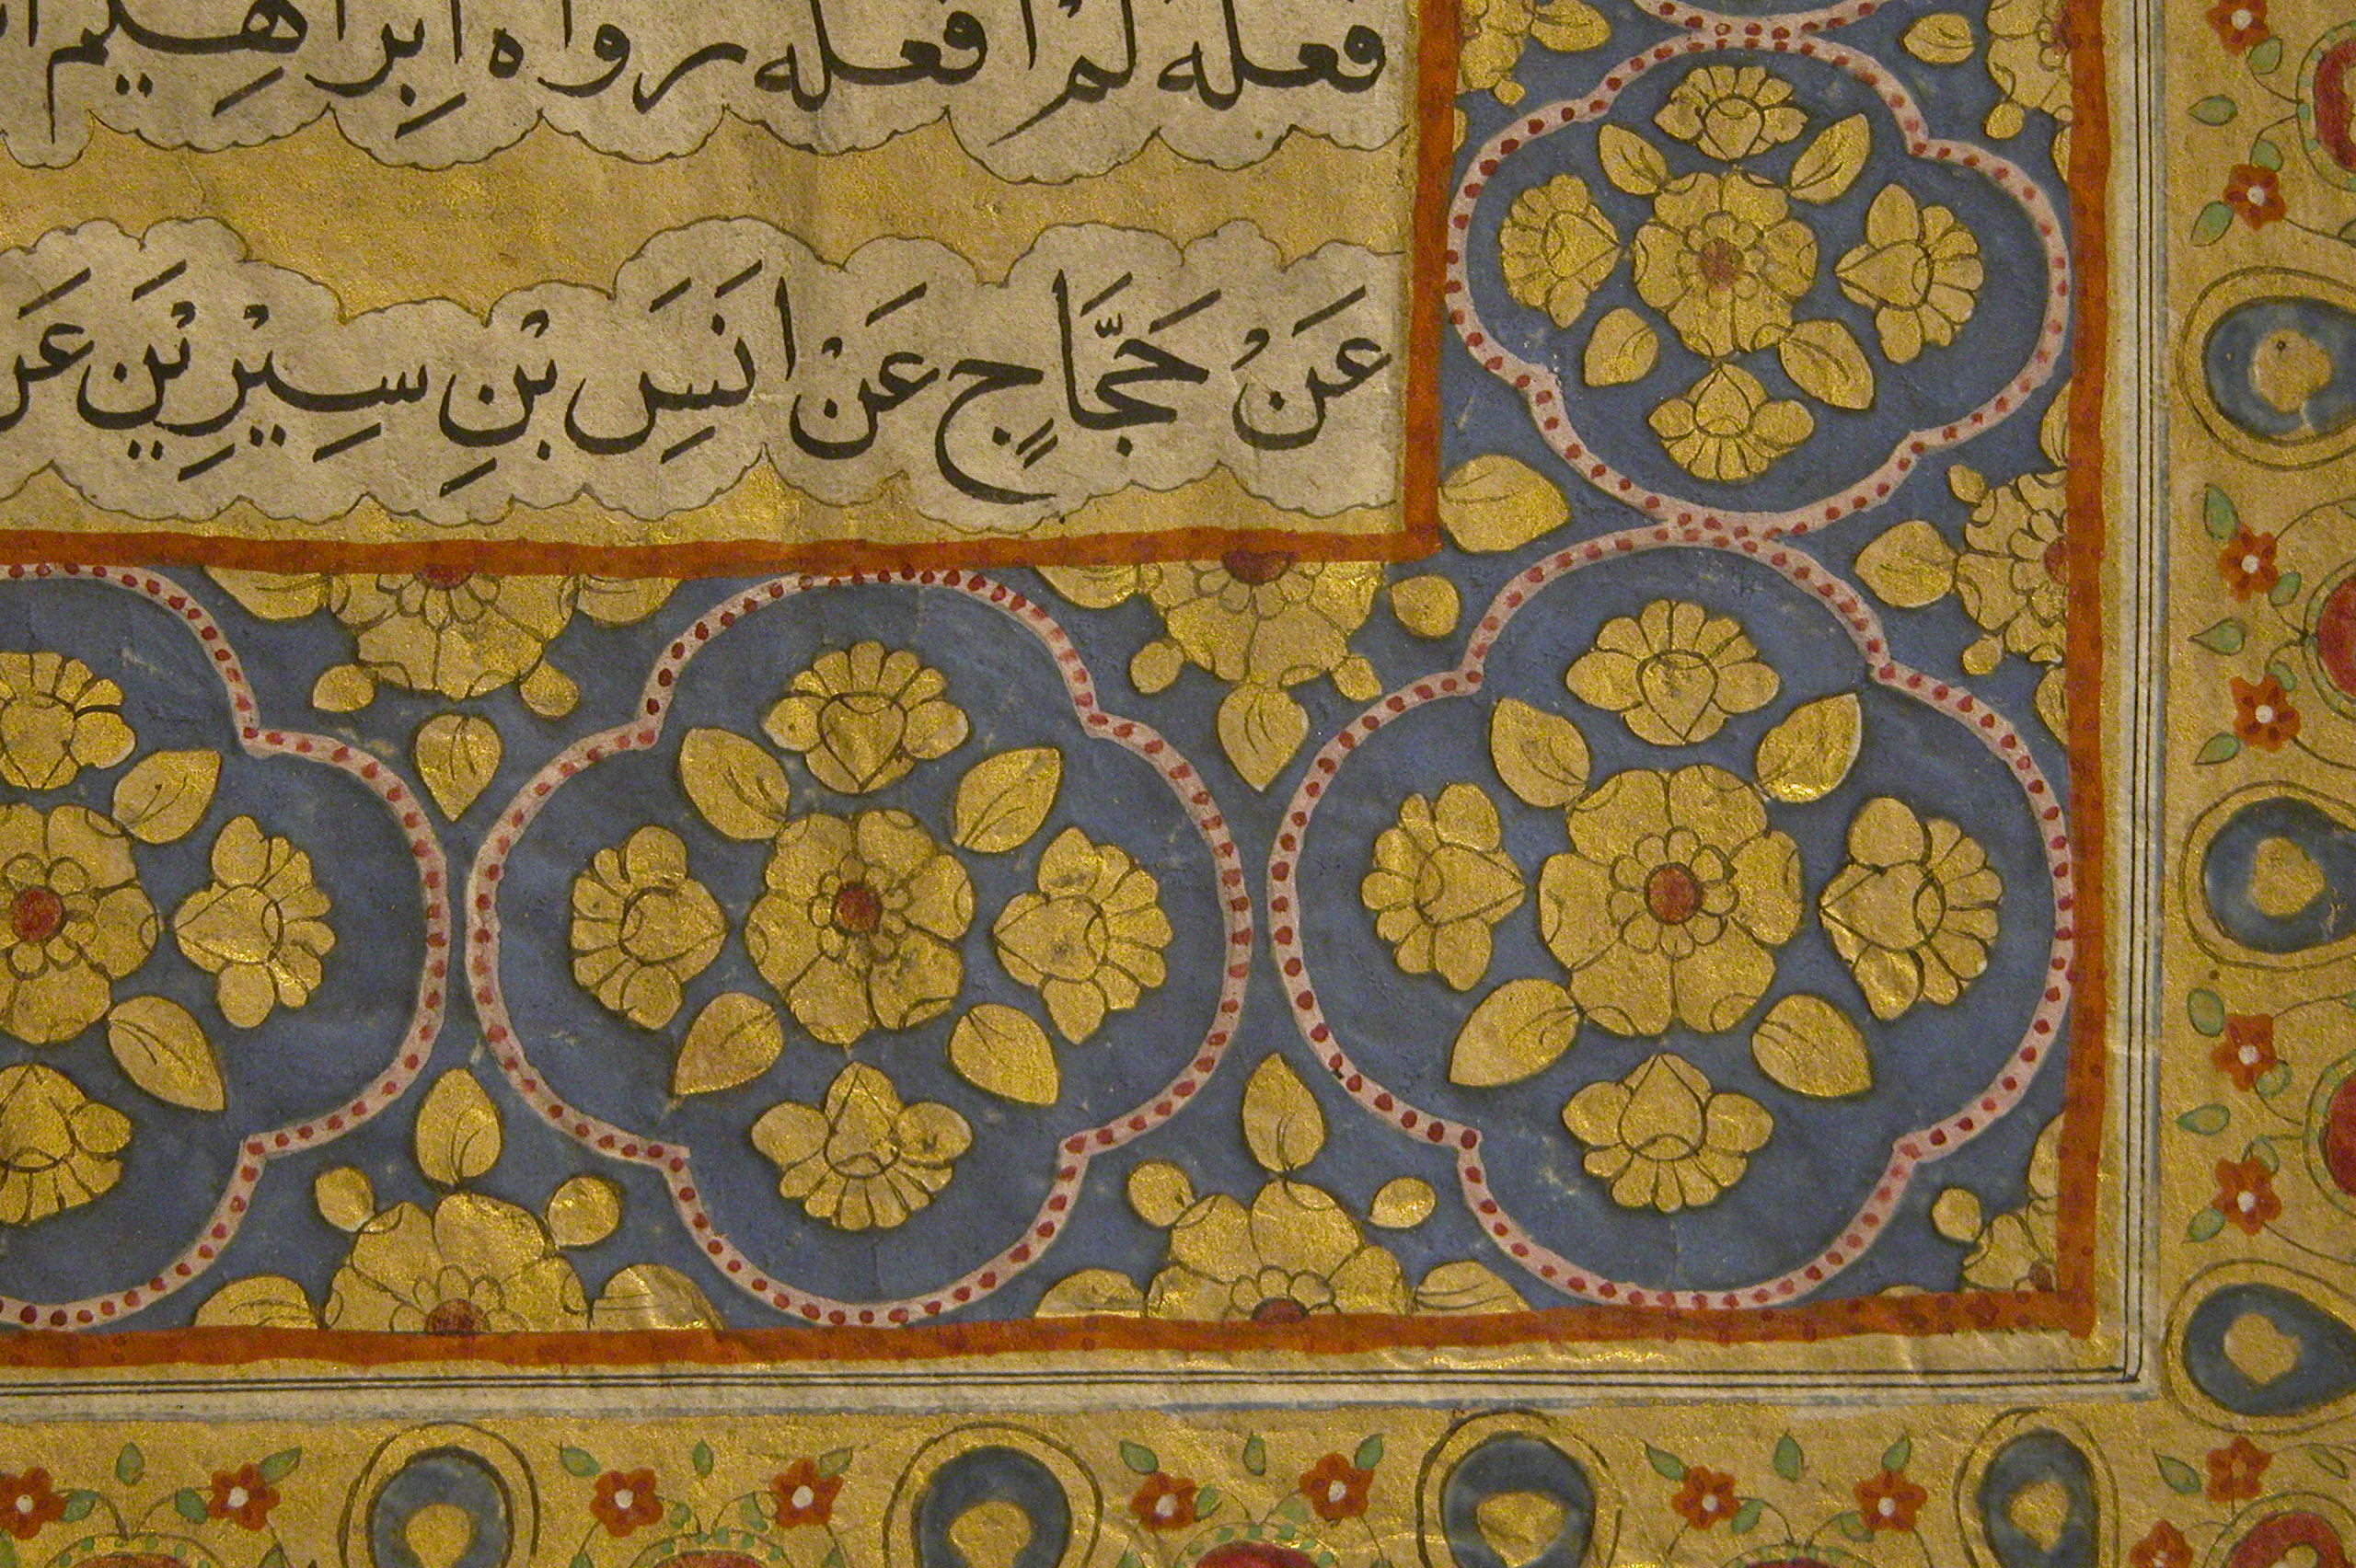 فعله لَمْ افعله رواه اِبراهِيم
عَنْ حَجَّاجٍ عَنْ انَسِ بْنِ سِيْرِيْنَ عَن